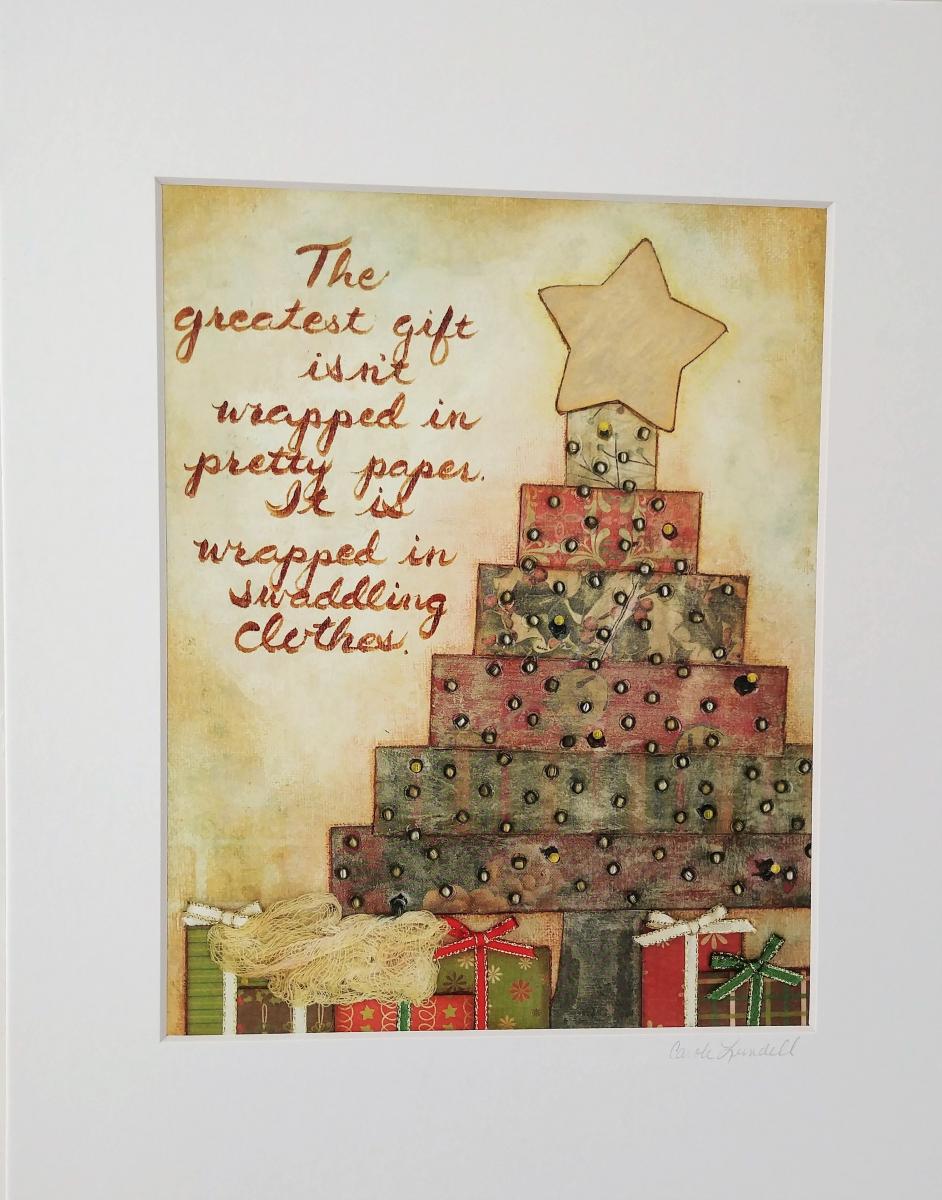 The
greatest gift
isn't
wrapped in
pretty paper.
It is
wrapped in
swaddling
clothes.
Carole Lundell